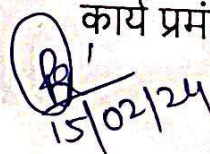 कार्य प्रमं
15/02/24